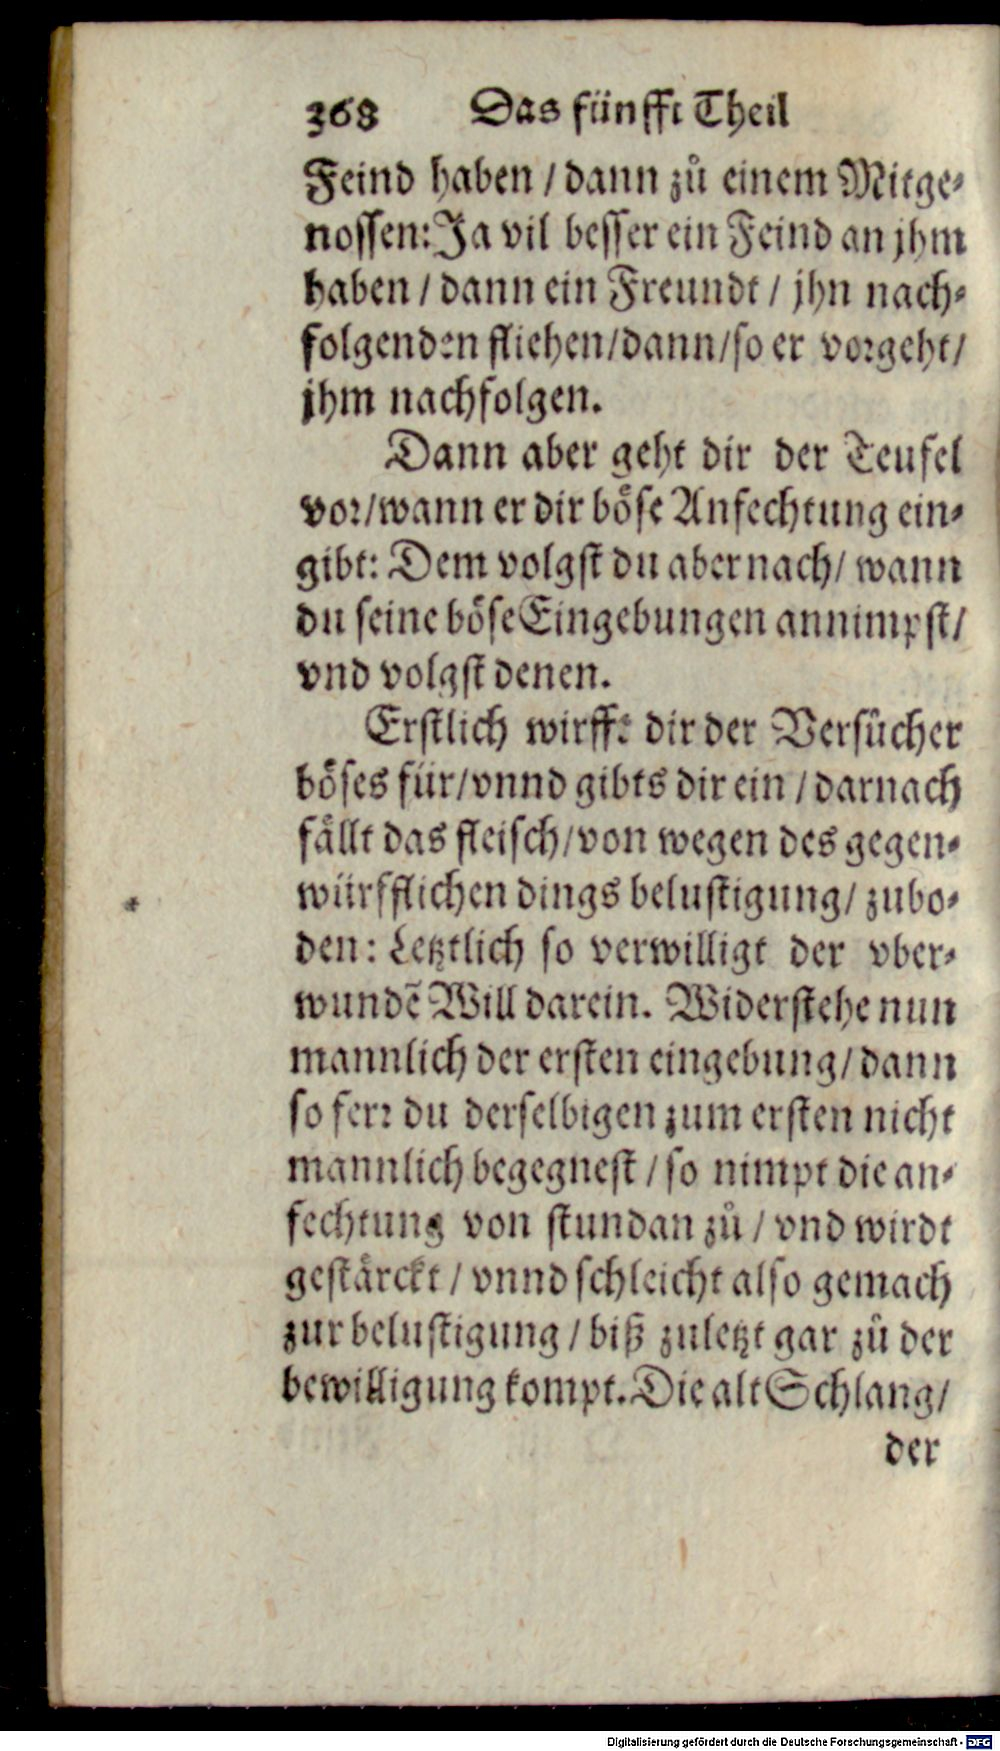 368 Das fünfft Theil
Feind haben / dann zů einem Mitge-
nossen: Ja vil besser ein Feind an jhm
haben / dann ein Freundt / jhn nach-
folgenden fliehen/dann/so er vorgeht/
jhm nachfolgen.
Dann aber geht dir der Teufel
vor/wann er dir böse Anfechtung ein-
gibt: Dem volgst du aber nach/ wann
du seine böse Eingebungen annimpst/
vnd volgst denen.
Erstlich wirfft dir der Versůcher
böses für/vnnd gibts dir ein / darnach
fällt das fleisch/von wegen des gegen-
würfflichen dings belustigung/ zubo-
den: Letztlich so verwilligt der vber-
wundẽ Will darein. Widerstehe nun
mannlich der ersten eingebung/dann
so ferr du derselbigen zum ersten nicht
mannlich begegnest / so nimpt die an-
fechtung von stundan zů / vnd wirdt
gestärckt / vnnd schleicht also gemach
zur belustigung / biß zuletzt gar zů der
bewilligung kompt. Die alt Schlang/
der
Digitalisierung gefördert durch die Deutsche Forschungsgemeinschaft - DFG